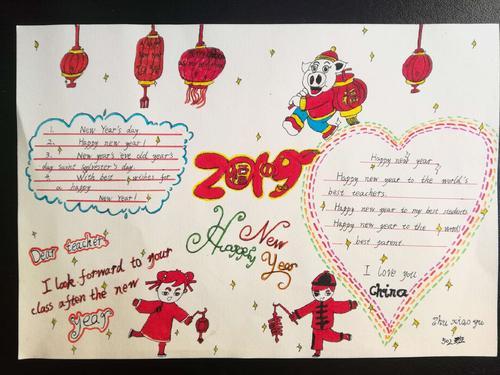 福
2019
1. New Year's day
2. Happy new year!
3. New year's eve old year's
day saint Sylvester's day.
4. With best wishes for
a happy
New Year!
Happy new year
Happy new year to the world's
best teachers.
Happy new year to my best students
Happy new year to the world
best parent.
I love you
China
Happy New Year
Dear teacher
I look forward to your
class aften the new
year
Zhu xiao yu